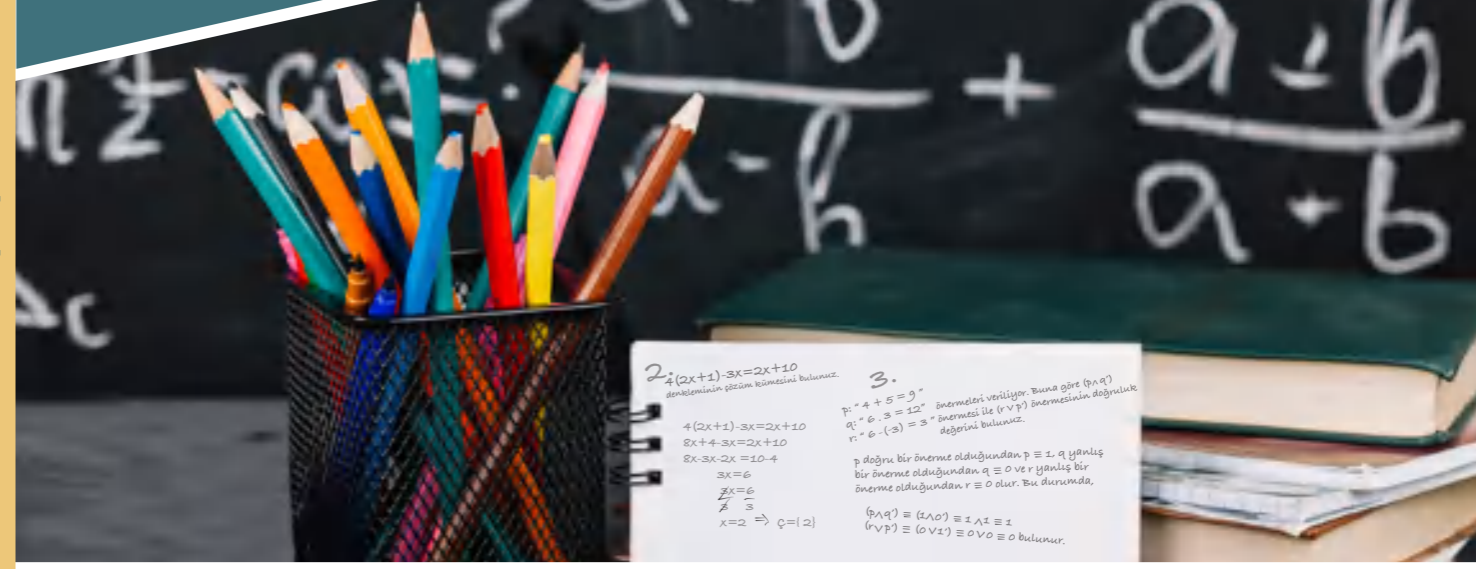 a - b
+
a + b
a - b
Δc
2.
4(2x+1)-3x=2x+10
denkleminin çözüm kümesini bulunuz.
4(2x+1)-3x=2x+10
8x+4-3x=2x+10
8x-3x-2x =10-4
3x=6
3x=6
3 3
x=2 ⇒ Ç={2}
3.
p: "4 + 5 = 9"
q: "6 . 3 = 12" önermeleri veriliyor. Buna göre (p∧q')
r: "6 -(-3) = 3" önermesi ile (r∨p') önermesinin doğruluk
değerini bulunuz.
p doğru bir önerme olduğundan p ≡ 1, q yanlış
bir önerme olduğundan q ≡ 0 ve r yanlış bir
önerme olduğundan r ≡ 0 olur. Bu durumda,
(p∧q') ≡ (1∧0') ≡ 1∧1 ≡ 1
(r∨p') ≡ (0∨1') ≡ 0∨0 ≡ 0 bulunur.